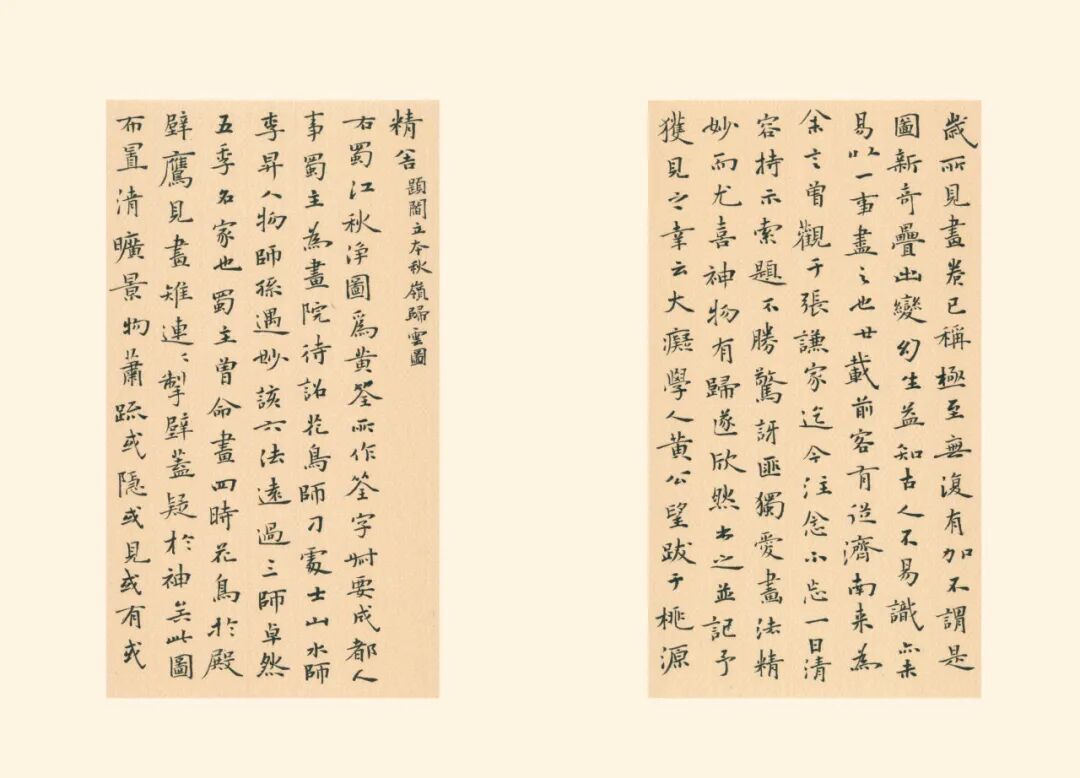 歲所見畫卷已稱極至無復有加不謂是
圖新奇疊出變幻生益知古人不易識亦未
易以一事盡之也廿載前客有從濟南来為
余言曾觀于張謙家迄今注念不忘一日清
容持示索題不勝驚訝匪獨愛畫法精
妙而尤喜神物有歸遂欣然書之並記予
獲見之幸云大癡學人黄公望跋于桃源
精舍 題閻立本秋嶺歸雲圖
右蜀江秋淨圖為黄筌所作筌字叔要成都人
事蜀主為畫院待詔花鳥師刁處士山水師
李昇人物師孫遇妙該六法遠過三師卓然
五季名家也蜀主曾命畫四時花鳥於殿
壁鷹見畫雉連連掣壁蓋疑於神矣此圖
布置清曠景物蕭疏或隱或見或有或